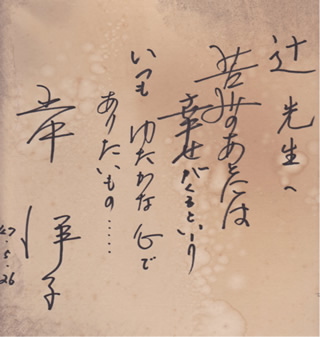 辻 先生へ
のあとには
幸せがくるという
いつも ゆたかな心で
ありたいもの……
岸 洋子
47.5.26